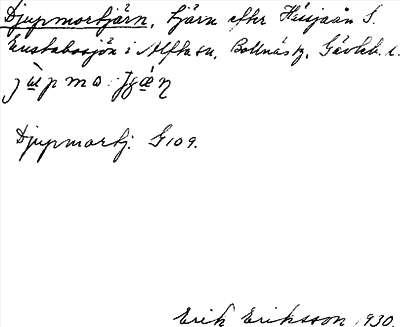 Djupmortjärn, tjärn efter Häsjaån S.
Gustabosjön i Alfta sn, Bollnäs tg, Gävleb. l.
Djupmortj. G109.
Erik Eriksson 1930.